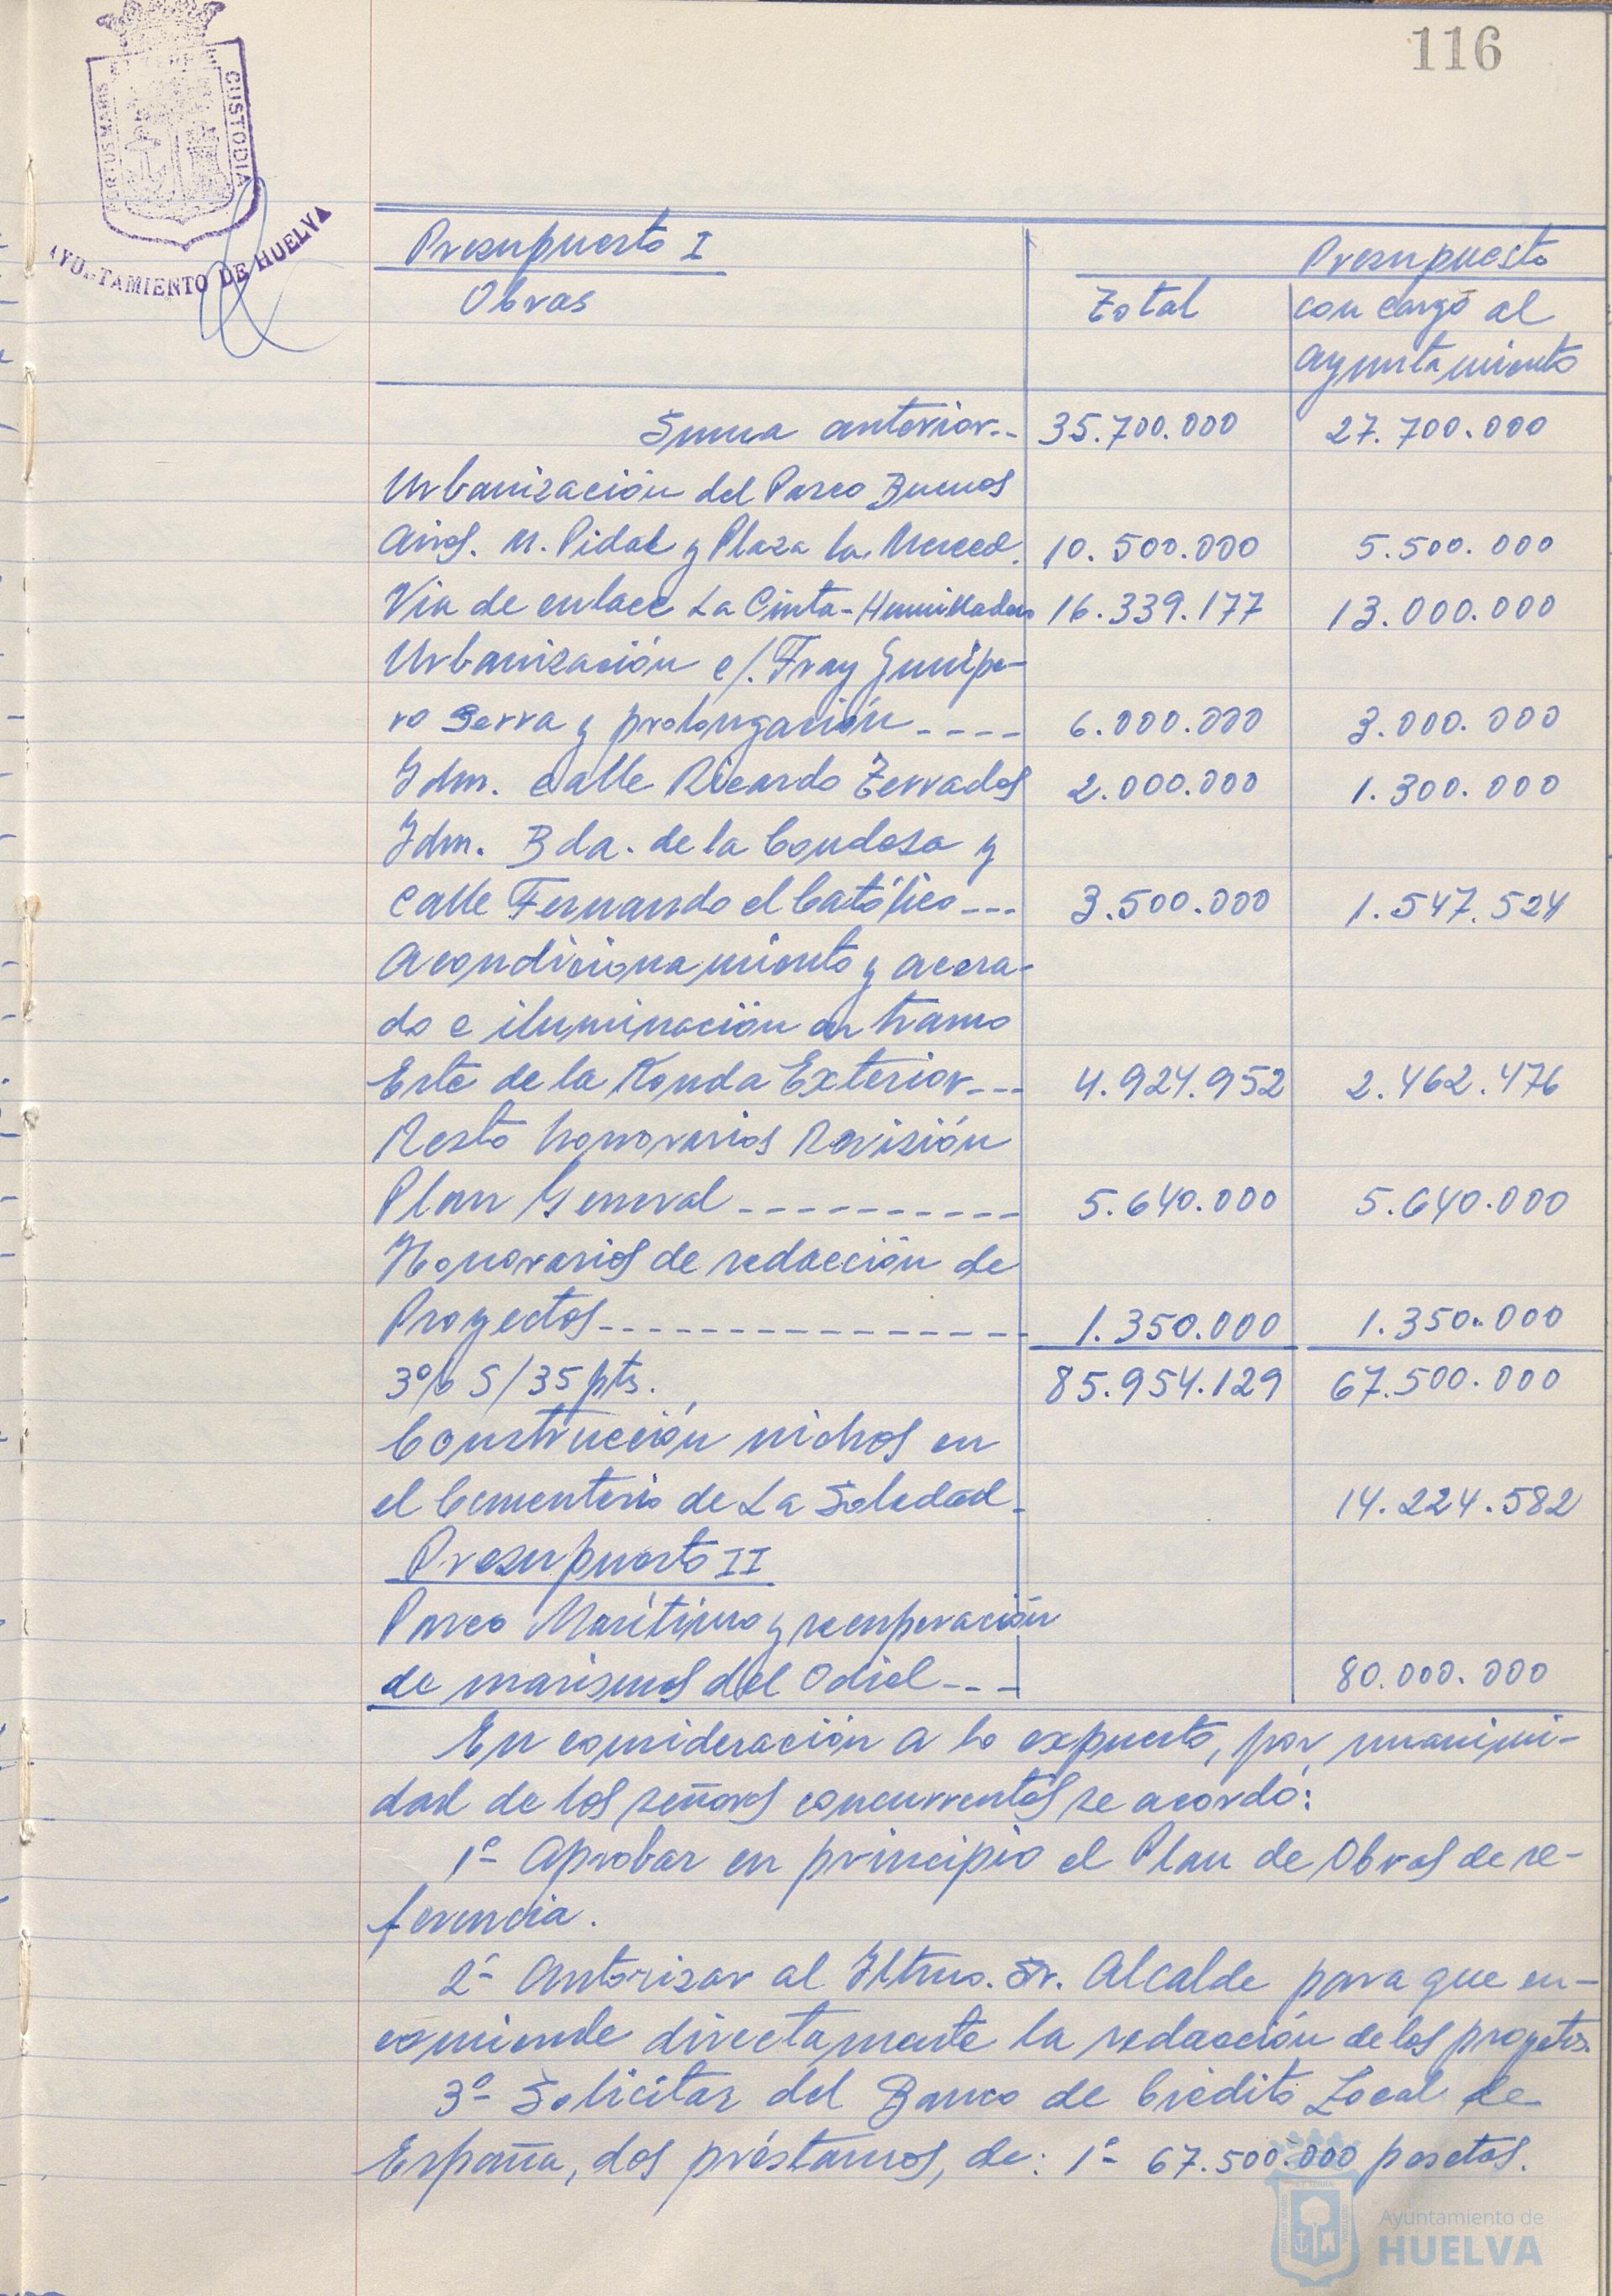 116
PORTUS MARIS ET TERRE CUSTODIA
AYUNTAMIENTO DE HUELVA
Presupuesto I Presupuesto
Obras Total con cargo al
ayuntamiento
Suma anterior-- 35.700.000 27.700.000
Urbanización del Paseo Buenos
Aires. M. Pidal y Plaza la Merced. 10.500.000 5.500.000
Via de enlace La Cinta-Humilladero 16.339.177 13.000.000
Urbanización c/. Fray Junípe-
ro Serra y prolongación---- 6.000.000 3.000.000
Idm. calle Ricardo Terrades 2.000.000 1.300.000
Idm. Bda. de la Condesa y
calle Fernando el Católico--- 3.500.000 1.547.524
Acondicionamiento y acera-
do e iluminación en tramo
Este de la Ronda Exterior--- 4.924.952 2.462.476
Resto honorarios Revisión
Plan General---------- 5.640.000 5.640.000
Honorarios de redacción de
Proyectos--------------- 1.350.000 1.350.000
3% S/35 pts. 85.954.129 67.500.000
Construcción nichos en
el Cementerio de La Soledad- 14.224.582
Presupuesto II
Paseo Marítimo y recuperación
de marismas del Odiel--- 80.000.000
En consideración a lo expuesto, por unanimi-
dad de los señores concurrentes se acordó:
1º- Aprobar en principio el Plan de Obras de re-
ferencia.
2º- Autorizar al Iltmo. Sr. Alcalde para que en-
comiende directamente la redacción de los proyectos.
3º- Solicitar del Banco de Crédito Local de
España, dos préstamos, de: 1º- 67.500.000 pesetas.
Ayuntamiento de
HUELVA